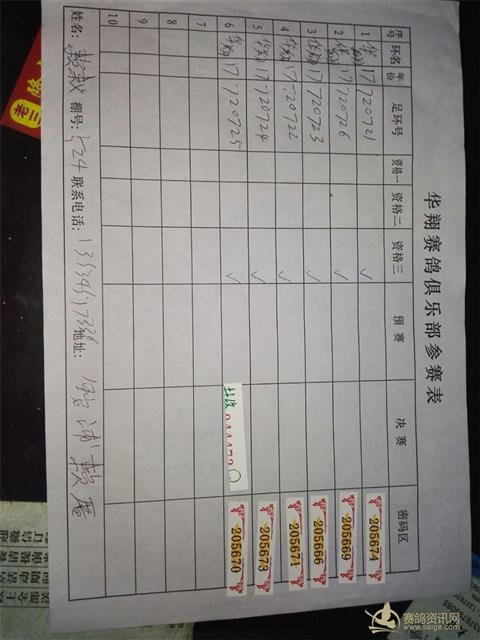 华翔赛鸽俱乐部参赛表
序号 环名 年份 足环号 资格一 资格二 资格三 预赛 决赛 密码区
1 华翔 17 720721 ✓ 205674
2 华翔 17 720726 ✓ 205669
3 华翔 17 720723 ✓ 205666
4 华翔 17 720722 ✓ 205671
5 华翔 17 720724 ✓ 205673
6 华翔 17 720725 ✓ 205670
7
8
9
10
姓名: 棚号: 524 联系电话: 地址:
老三
赛鸽资讯网
www.saige.com